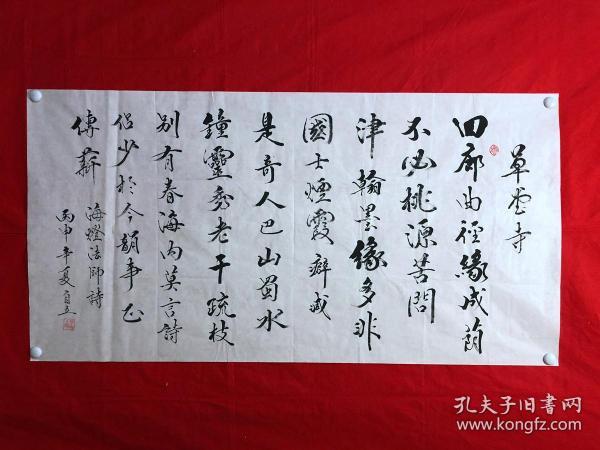 草堂寺
回廊曲徑綠成蔭
不必桃源苦問
津翰墨緣多非
國士煙霞癖或
是奇人巴山蜀水
鐘靈秀老干疏枝
別有春海內莫言詩
侶少於今韻事正
傳薪 海燈法師詩
丙申年夏
孔夫子旧书网
www.kongfz.com